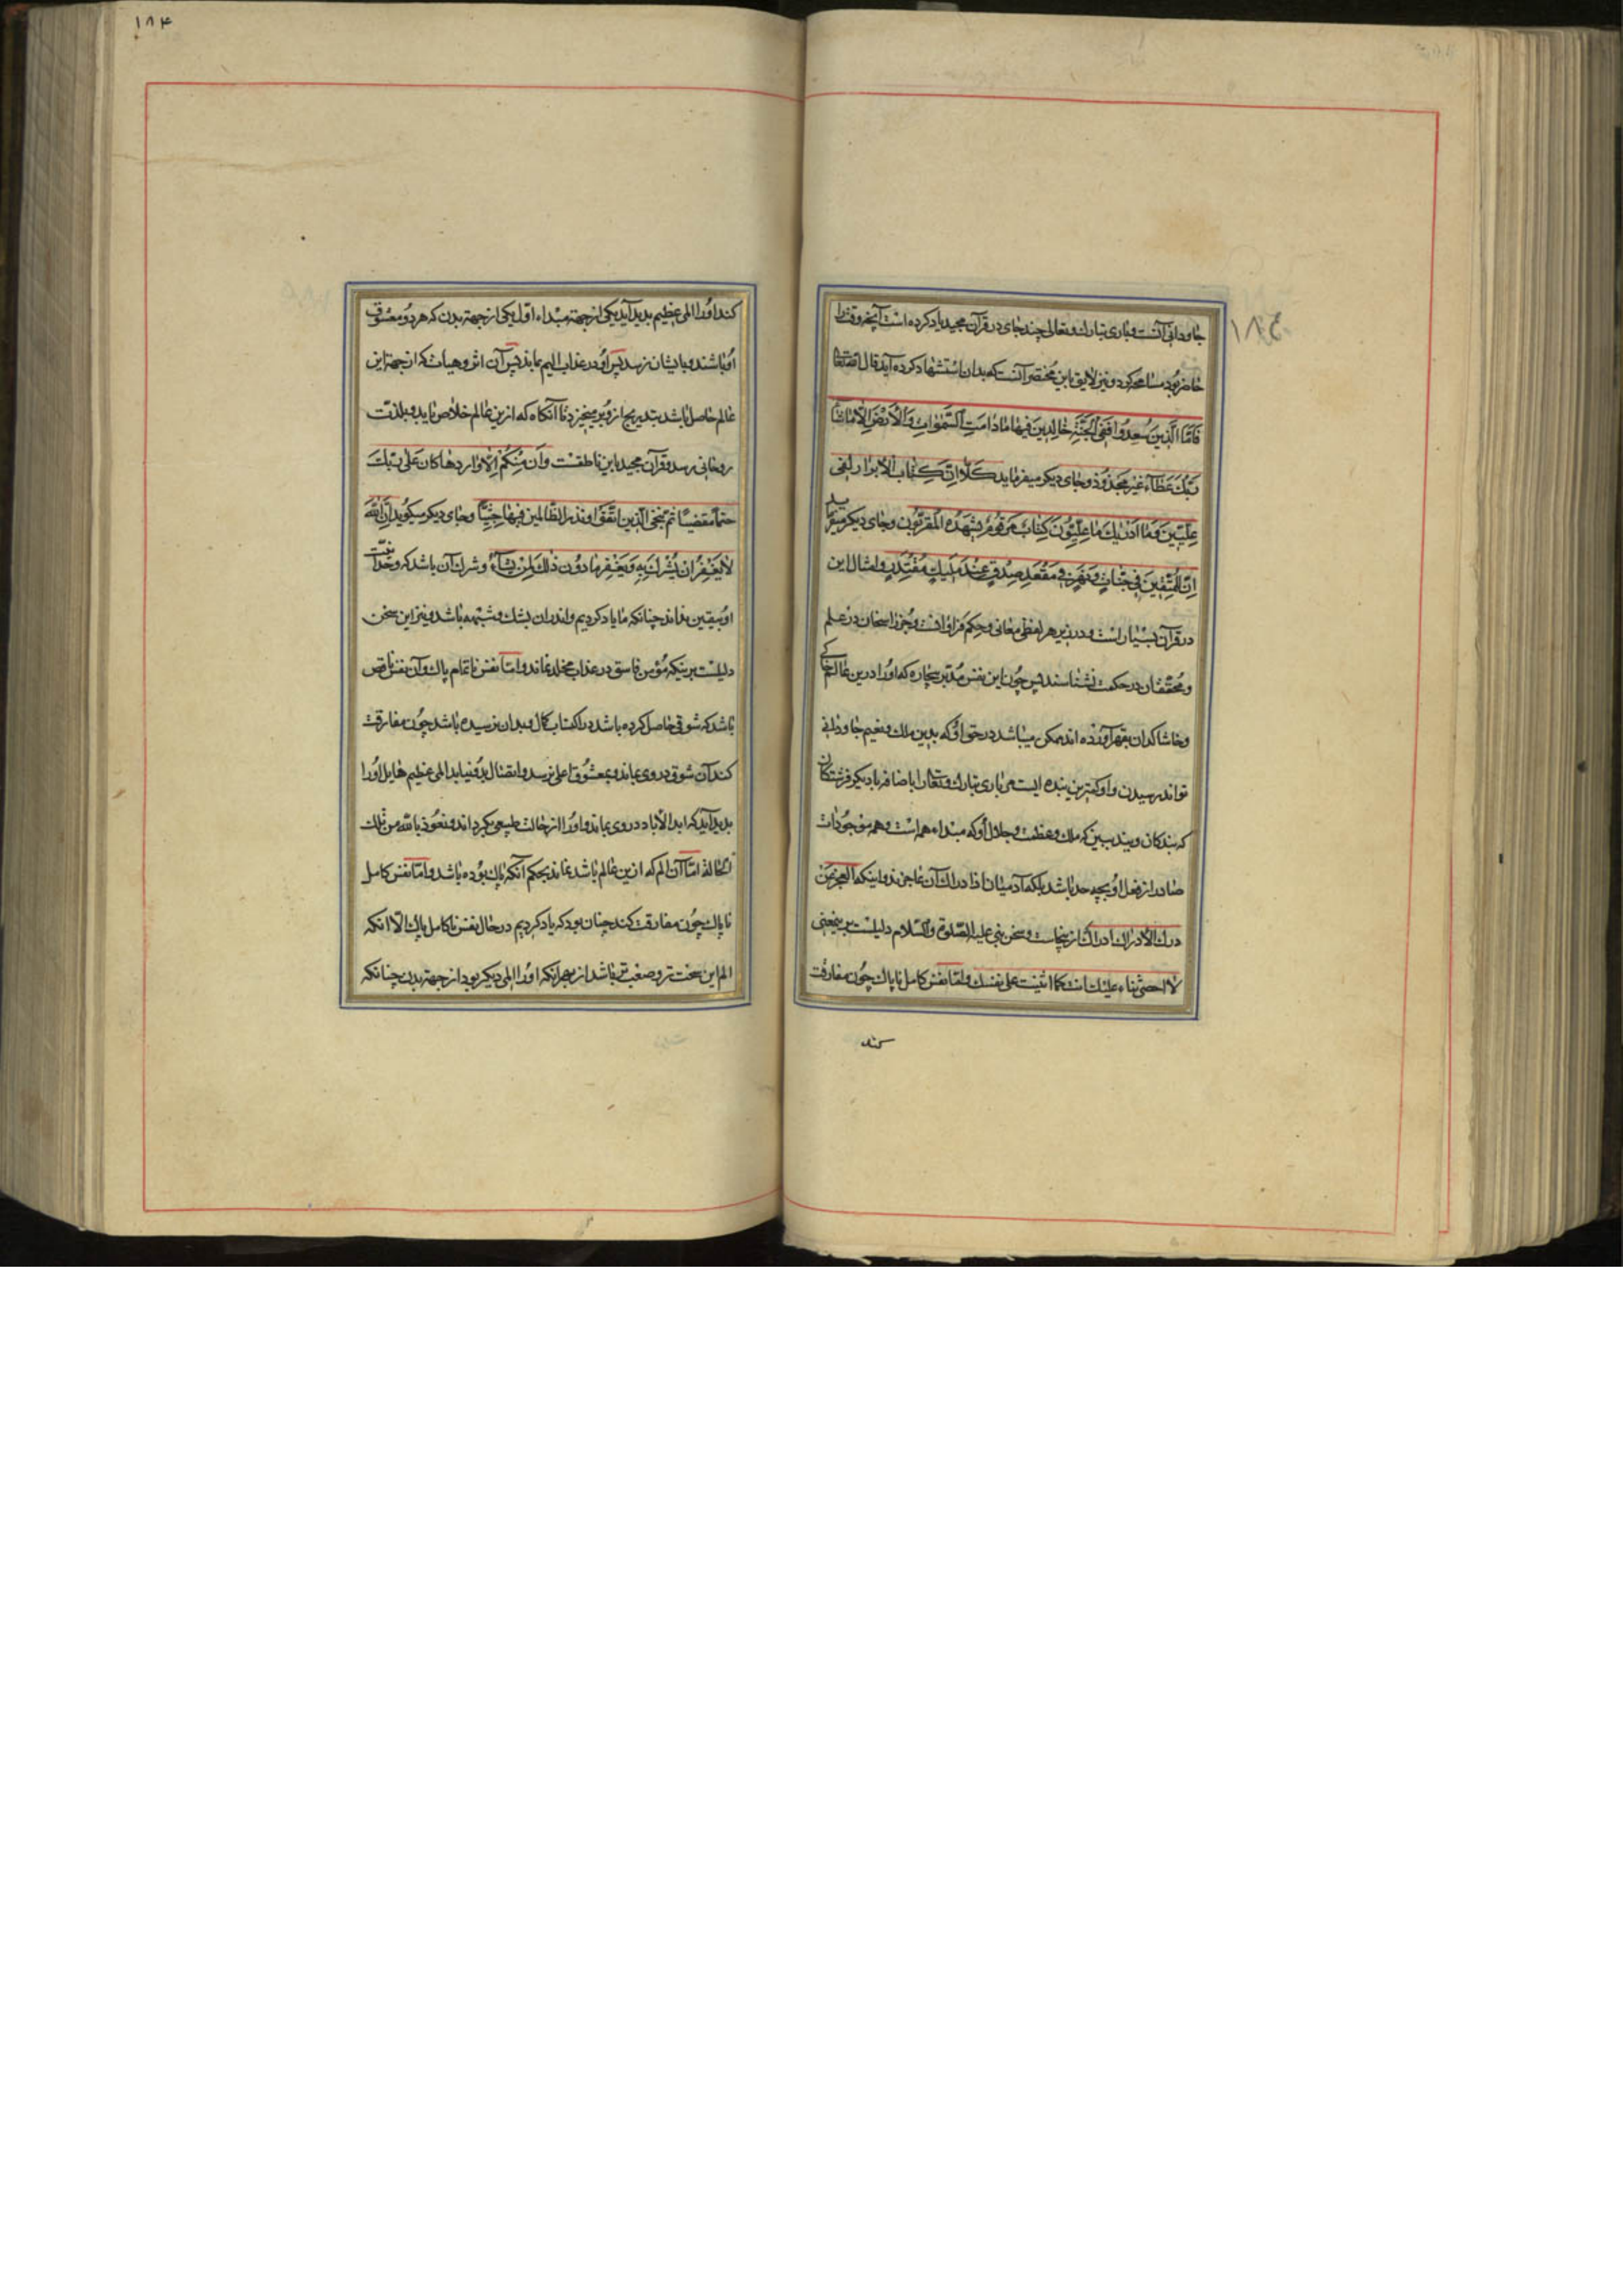 جاودانی آنست و باری تبارک و تعالی چند جای در قرآن مجید یاد کرده است آنچه وقت را
حاضر بود مسامحه کرد و نیز لایق باین مختصر آنست که بدان استشهاد کرده آید قال الله تعالی
فَامَّا الَّذینَ سُعِدُوا فَفِی الْجَنَّةِ خالِدینَ فیها مادامَتِ السَّمٰواتِ وَالْاَرْضُ اِلّا ماشاء
رَبُّکَ عَطَآءً غَیْرَ مَجْذُوذٍ و جای دیگر میفرماید کَلّا اِنَّ کِتابَ الْاَبْرارِ لَفی
عِلِّیّینَ وَمَا اَدْریٰکَ مَا عِلِّیُّونَ کِتابٌ مَرْقُومٌ یَشْهَدُهُ الْمُقَرَّبُونَ و جای دیگر میفرماید
اِنَّ الْمُتَّقینَ فی جَنّاتٍ وَنَهَرٍ فی مَقْعَدِ صِدْقٍ عِنْدَ مَلیکٍ مُقْتَدِرٍ و امثال این
در قرآن بسیار است و در زیر هر لفظی معانی و حکم فراوانست و جز راسخان در علم
و محققان در حکمت نشناسند پس چون این نفس مدبر بیچاره که او را درین عالم خاکی
و خاشاکدان بقهر آورده اند ممکن میباشد در حق او که بدین ملک و نعیم جاودانی
تواند رسیدن و او کمترین بنده ایست مر باری تبارک و تعالی را باضافه با دیگر فرشتگان
که بندگان ویند ببین که ملک و عظمت و جلال او که مبداء همه است و همه موجودات
صادر از فعل او بچه حد باشد بلکه آدمیان از ادراک آن عاجزند و اینکه العجز عن
درک الادراک ادراک از ینجاست و سخن نبی علیه الصّلوة والسّلام دلیلست بر ینمعنی
لا احصی ثناء علیک انت کما اثنیت علی نفسک و امّا نفس کامل ناپاک چون مفارقت
کند
۱۸۴
کند او را المی عظیم بدید آید یکی از جهة مبداء اوّل یکی از جهة بدن که هر دو معشوق
او باشند و بایشان نرسد پس او در عذاب الیم بماند پس آن اثر و هیات که از جهة این
عالم حاصل باشد بتدریج از و برمیخیزد تا آنگاه که ازین عالم خلاص یابد و بلذّت
روحانی رسد و قرآن مجید باین ناطقست وَاِنْ مِنْکُمْ اِلّا وارِدها کانَ عَلی رَبِّکَ
حتماً مقضیّاً ثمّ ننجّی الّذین اتّقوا و نذر الظّالمین فیها جِثیّاً و جای دیگر میگوید اِنَّ اللّٰهَ
لا یَغْفِرُ اَنْ یُشْرَکَ بِهِ وَیَغْفِرُ مادُونَ ذٰلِکَ لِمَنْ یَشآءُ و شرک آن باشد که وحدانیّت
او بیقین نداند چنانکه ما یاد کردیم و اندران بشک و شبهه باشد و نیز این سخن
دلیلست برینکه مؤمن فاسق در عذاب مخلد نماند و امّا نفس ناتمام پاک و آن نفس ناقص
باشد که شوقی حاصل کرده باشد در اکتساب کمال و بدان نرسیده باشد چون مفارقت
کند آن شوق در وی بماند و بمعشوق اعلی نرسد و اتصال بدو نیابد المی عظیم هایل او را
بدید آید که ابد الآباد در وی بماند و او را از حالت طبیعی بگرداند و نعوذ بالله من تلک
الحالة امّا آن الم که ازین عالم باشد نماند بحکم آنکه پاک بوده باشد و امّا نفس کامل
ناپاک چون مفارقت کند چنان بود که یاد کردیم در حال نفس ناکامل پاک الّا آنکه
الم این سخت تر و صعبتر باشد از بهر آنکه او را المی دیگر بود از جهة بدن چنانکه